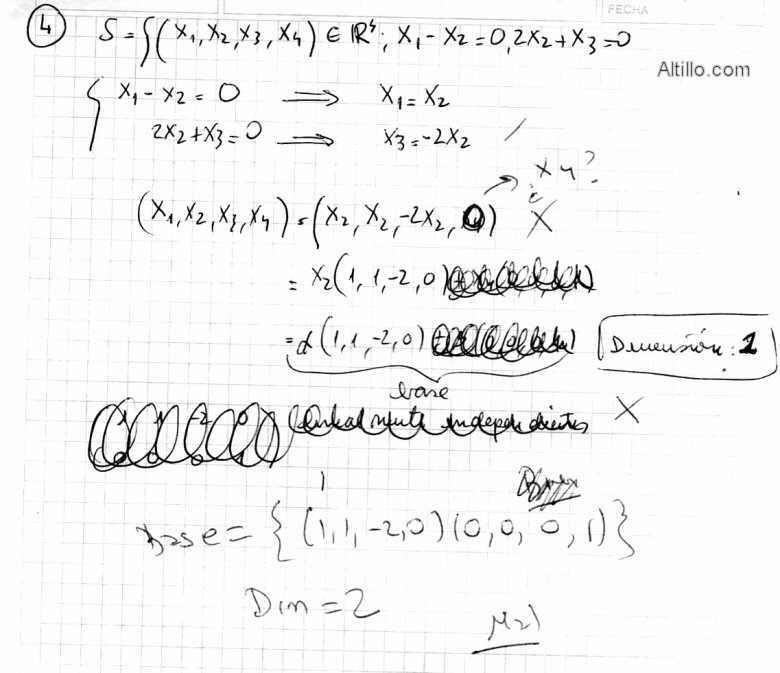 FECHA
4 S = {(x₁, x₂, x₃, x₄) ∈ ℝ⁴; x₁ - x₂ = 0, 2x₂ + x₃ = 0
Altillo.com
x₁ - x₂ = 0 ⟹ x₁ = x₂
2x₂ + x₃ = 0 ⟹ x₃ = -2x₂
¿x4?
(x₁, x₂, x₃, x₄) = (x₂, x₂, -2x₂, 0) X
= x₂(1, 1, -2, 0)
= α(1, 1, -2, 0) Dimensión: 1
base
linealmente independientes X
Base = {(1, 1, -2, 0)(0, 0, 0, 1)}
Dim = 2